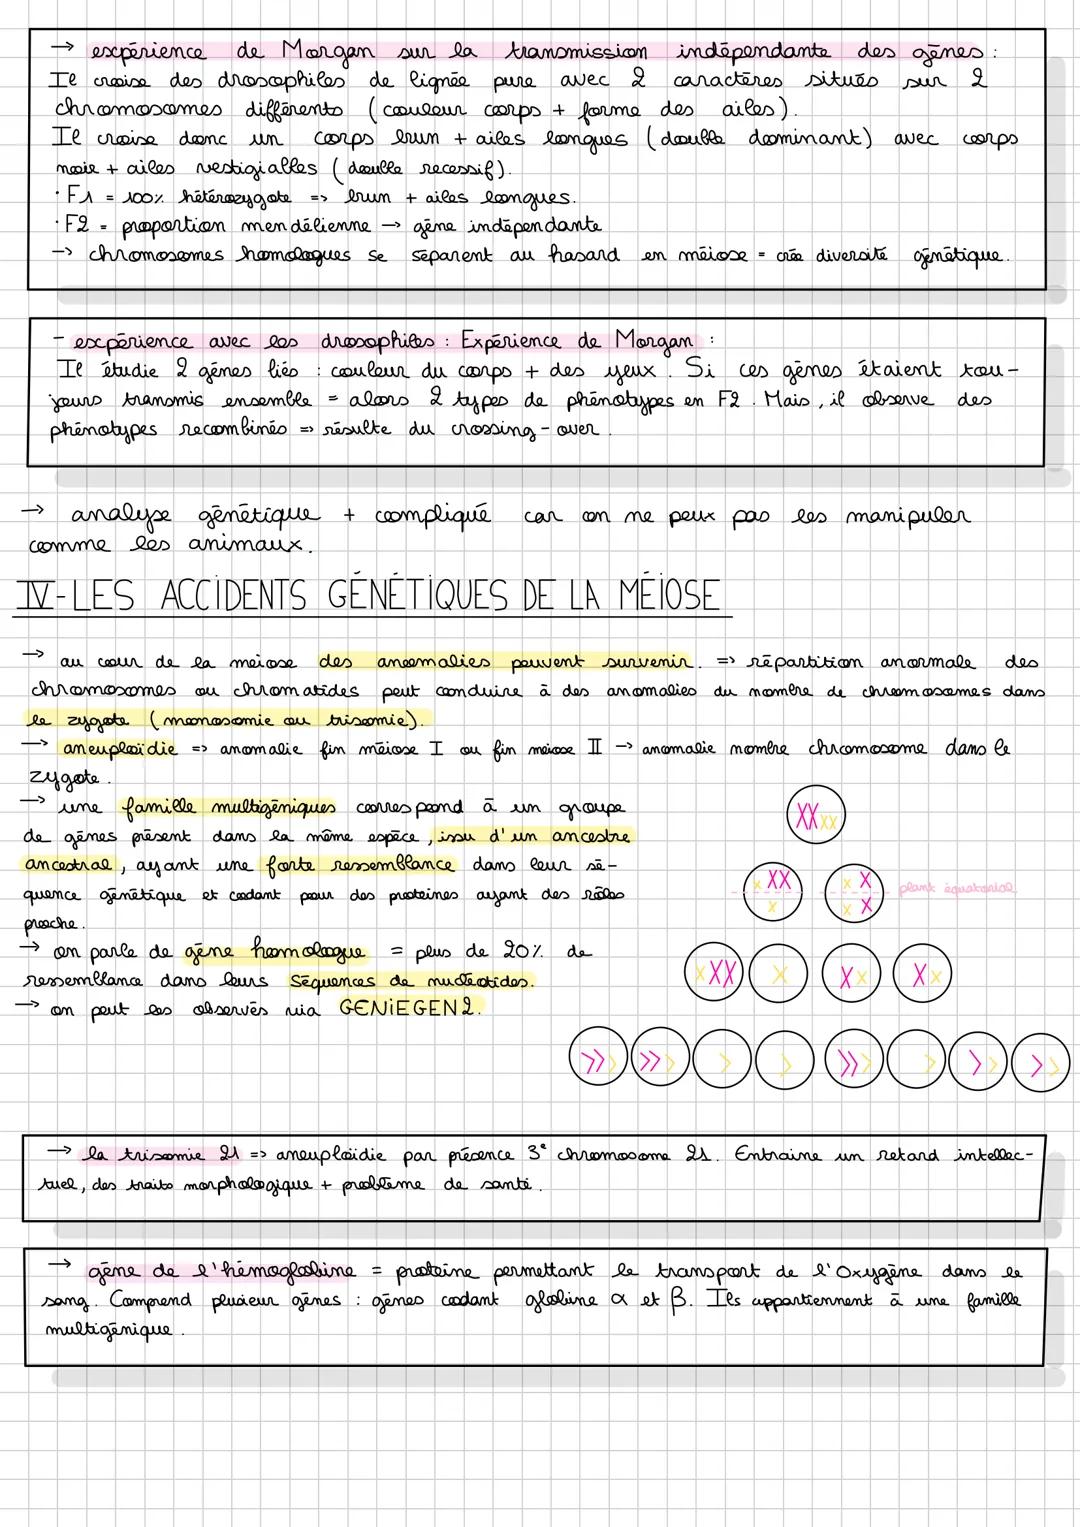 → expérience de Morgan sur la transmission indépendante des gènes :
Il croise des drosophiles de lignée pure avec 2 caractères situés sur 2
chromosomes différents (couleur corps + forme des ailes).
Il croise donc un corps brun + ailes longues (double dominant) avec corps
noir + ailes vestigialles (double recessif).
· F1 = 100% hétérozygote => brun + ailes longues.
· F2 = proportion mendélienne → gène indépendante
→ chromosomes homologues se séparent au hasard en méiose = crée diversité génétique.
- expérience avec les drosophiles : Expérience de Morgan :
Il étudie 2 gènes liés : couleur du corps + des yeux. Si ces gènes étaient tou-
jours transmis ensemble = alors 2 types de phénotypes en F2. Mais, il observe des
phénotypes recombinés => résulte du crossing-over.
→ analyse génétique + compliqué car on ne peux pas les manipuler
comme les animaux.
IV-LES ACCIDENTS GÉNÉTIQUES DE LA MÉIOSE
→ au cour de la meiose des anomalies peuvent survenir. => répartition anormale des
chromosomes ou chromatides peut conduire à des anomalies du nombre de chromosomes dans
le zygote (monosomie ou trisomie).
→ aneuploïdie => anomalie fin méiose I ou fin meiose II → anomalie nombre chromosome dans le
zygote.
→ une famille multigéniques correspond à un groupe
de gènes présent dans la même espèce, issu d'un ancestre
ancestral, ayant une forte ressemblance dans leur sé-
quence génétique et codant pour des proteines ayant des rôles
proche.
plant équatorial
→ on parle de gène homologue = plus de 20% de
ressemblance dans leurs séquences de nucléotides.
→ on peut les observés via GENIEGEN2.
→ la trisomie 21 => aneuploïdie par présence 3e chromosome 21. Entraine un retard intellec-
tuel, des traits morphologique + problème de santé.
→ gène de l'hémoglobine = protéine permettant le transport de l'Oxygène dans le
sang. Comprend plusieur gènes : gènes codant globine α et β. Ils appartiennent à une famille
multigénique.